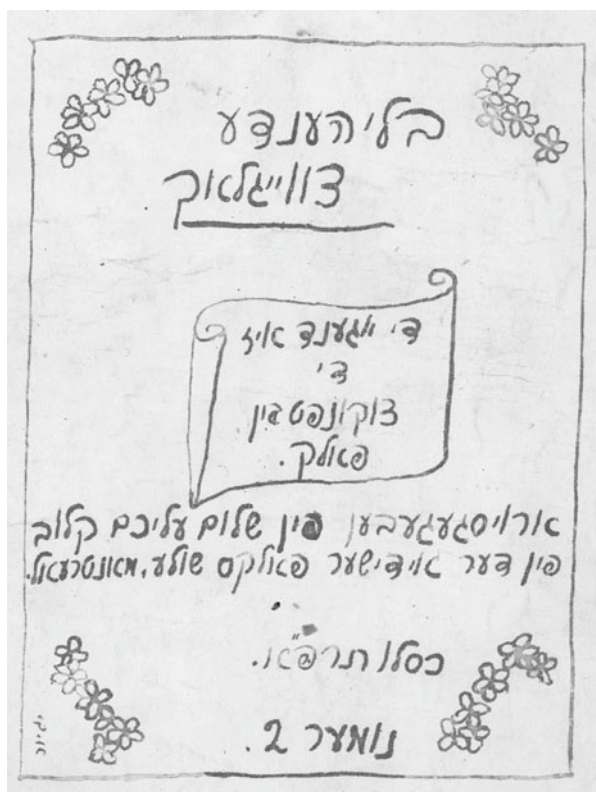 בליהענדע
צווייגלאך
די יוגענד איז
די
צוקונפט פין
פאלק.
ארויסגעגעבען פין שלום עליכם קלוב
פין דער אידישער פאלקס שולע, מאנטרעאל.
כסלו תרפ"א.
נומער 2.